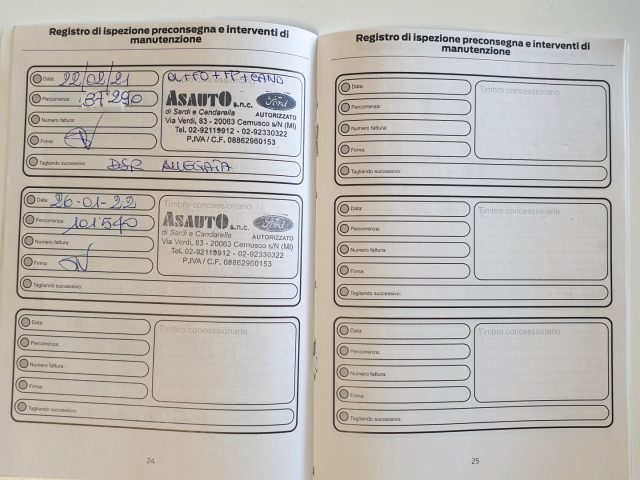 Registro di ispezione preconsegna e interventi di
manutenzione
Data: 22/02/21
Percorrenza: 87290
Numero fattura:
Firma:
Tagliando successivo: DSR ALLEGATA
OL+FO+FP+CAND
ASAUTO s.n.c. Ford
di Sardi e Candarella AUTORIZZATO
Via Verdi, 83 - 20063 Cernusco s/N (MI)
Tel. 02-92119912 - 02-92330322
P.IVA / C.F. 08862960153
Data: 26-01-22
Percorrenza: 101540
Numero fattura:
Firma:
Tagliando successivo:
Timbro concessionario
ASAUTO s.n.c. Ford
di Sardi e Candarella AUTORIZZATO
Via Verdi, 83 - 20063 Cernusco s/N (MI)
Tel. 02-92119912 - 02-92330322
P.IVA / C.F. 08862960153
Data:
Percorrenza:
Numero fattura:
Firma:
Tagliando successivo:
Timbro concessionario
24
Registro di ispezione preconsegna e interventi di
manutenzione
Data:
Percorrenza:
Numero fattura:
Firma:
Tagliando successivo:
Timbro concessionario
Data:
Percorrenza:
Numero fattura:
Firma:
Tagliando successivo:
Timbro concessionario
Data:
Percorrenza:
Numero fattura:
Firma:
Tagliando successivo:
Timbro concessionario
25